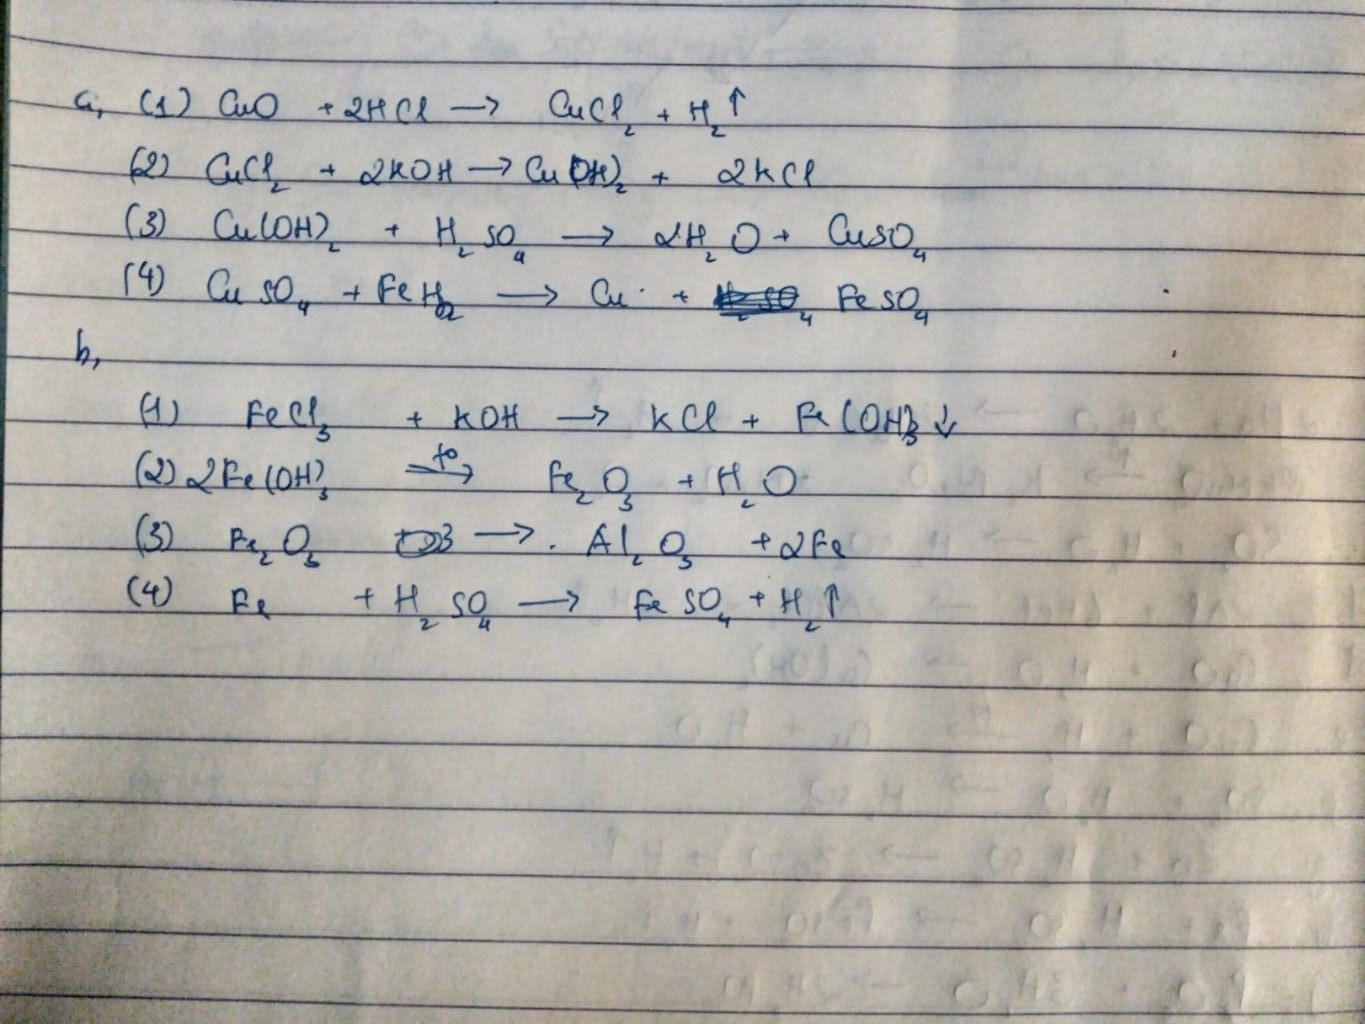 a, (1) CuO + 2HCl → CuCl₂ + H₂↑
(2) CuCl₂ + 2KOH → Cu(OH)₂ + 2KCl
(3) Cu(OH)₂ + H₂SO₄ → 2H₂O + CuSO₄
(4) CuSO₄ + FeH₂ → Cu + FeSO₄
b,
(1) FeCl₃ + KOH → KCl + Fe(OH)₃↓
(2) 2Fe(OH)₃ →t° Fe₂O₃ + H₂O
(3) Fe₂O₃ → Al₂O₃ + 2Fe
(4) Fe + H₂SO₄ → FeSO₄ + H₂↑